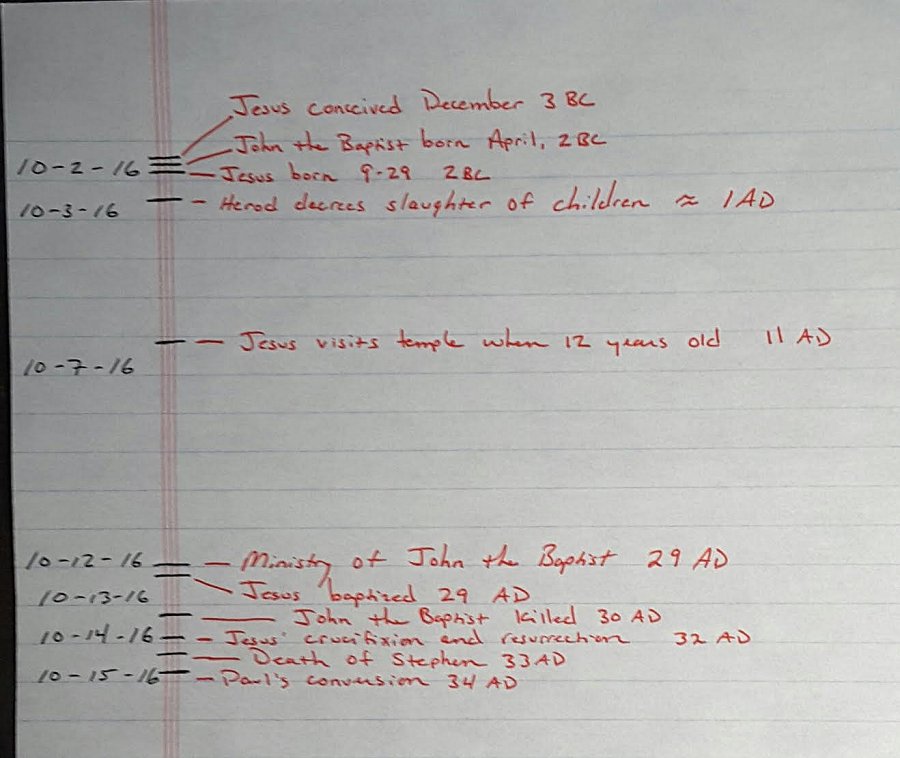 Jesus conceived December 3 BC
John the Baptist born April, 2 BC
10-2-16 - Jesus born 9-29 2 BC
10-3-16 - Herod decrees slaughter of children ≈ 1 AD
- Jesus visits temple when 12 years old 11 AD
10-7-16
10-12-16 - Ministry of John the Baptist 29 AD
10-13-16 Jesus baptized 29 AD
- John the Baptist killed 30 AD
10-14-16 - Jesus' crucifixion and resurrection 32 AD
- Death of Stephen 33 AD
10-15-16 - Paul's conversion 34 AD